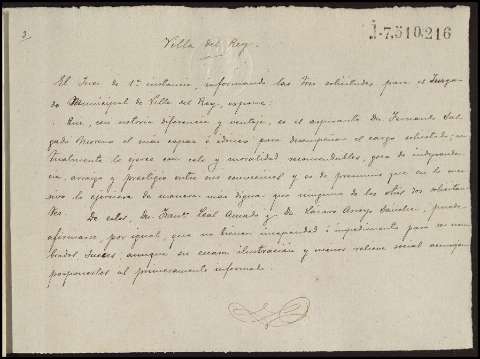 3.
J-7.510.216
Villa del Rey.
El Juez de 1ª instancia, informando las tres solicitudes para el Juzga-
do Municipal de Villa del Rey, expone:
Que, con notoria diferencia y ventaja, es el aspirante Dn. Fernando Sal-
gado Moreno el mas capaz é idóneo para desempeñar el cargo solicitado; ac-
tualmente lo ejerce con celo y moralidad recomendables, goza de independen-
cia, arraigo y prestigio entre sus convecinos y es de presumir que en lo suce-
sivo lo ejercerá de manera mas digna que ninguno de los otros dos solicitan-
tes. De estos, Dn. Franco. Leal Amado y Dn. Lázaro Sánchez, puede
afirmarse, por igual, que no tienen incapacidad ó impedimento para ser nom-
brados Jueces aunque su escasa ilustración y menos relieve social aconsejan
posponerlos al primeramente informado.